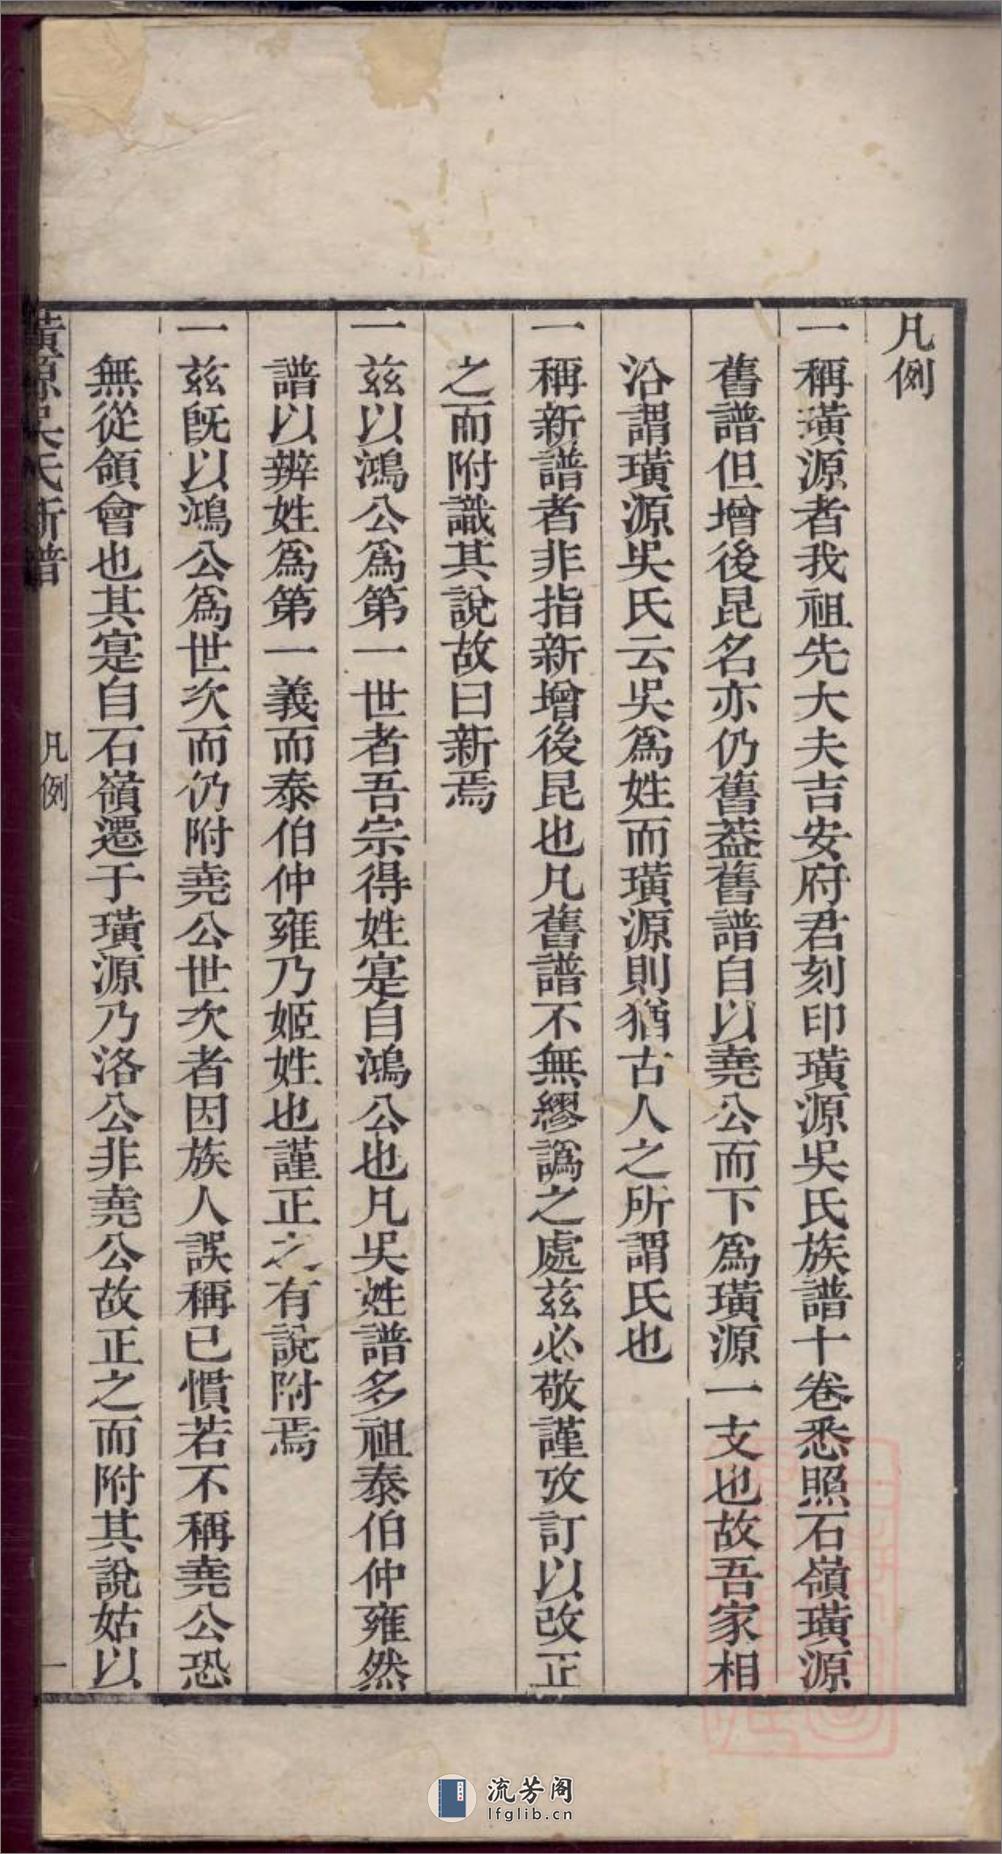 凡例
一稱璜源者我祖先大夫吉安府君刻印璜源吳氏族譜十卷悉照石嶺璜源
舊譜但增後昆名亦仍舊葢舊譜自以堯公而下爲璜源一支也故吾家相
沿謂璜源吳氏云吳爲姓而璜源則猶古人之所謂氏也
一稱新譜者非指新增後昆也凡舊譜不無繆譌之處茲必敬謹攷訂以改正
之而附識其說故曰新焉
一茲以鴻公爲第一世者吾宗得姓寔自鴻公也凡吳姓譜多祖泰伯仲雍然
譜以辨姓爲第一義而泰伯仲雍乃姬姓也謹正之有說附焉
一茲旣以鴻公爲世次而仍附堯公世次者因族人誤稱已慣若不稱堯公恐
無從領會也其寔自石嶺遷于璜源乃洛公非堯公故正之而附其說姑以
璜源吳氏新譜
凡例
一
流芳阁
lfglib.cn